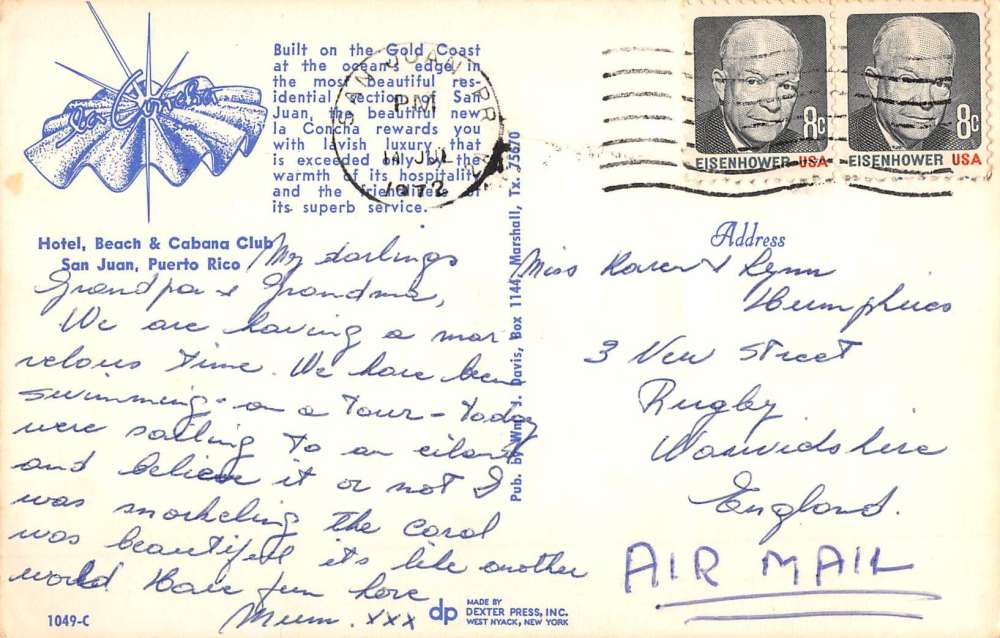 La Concha
Built on the Gold Coast
at the ocean's edge in
the most beautiful res-
idential section of San
Juan, the beautiful new
la Concha rewards you
with lavish luxury that
is exceeded only by the
warmth of its hospitality
and the friendliness of
its superb service.
Hotel, Beach & Cabana Club
San Juan, Puerto Rico
SAN JUAN, P.R.
PM
JUL
1972
EISENHOWER USA 8c
EISENHOWER USA 8c
My darlings
Grandpa & Grandma,
We are having a mar
velous time. We have been
swimming - on a tour - today
were sailing to an eiland
and believe it or not I
was snorkeling the coral
was beautifull its like another
world Have fun
Mum. xxx
Pub. by Wm. J. Davis, Box 1144, Marshall, Tx. 75670
Address
Miss Karen & Lynn
Humphries
3 Vew Street
Rugby
Warwidshire
England.
AIR MAIL
1049-C
dp MADE BY
DEXTER PRESS, INC.
WEST NYACK, NEW YORK